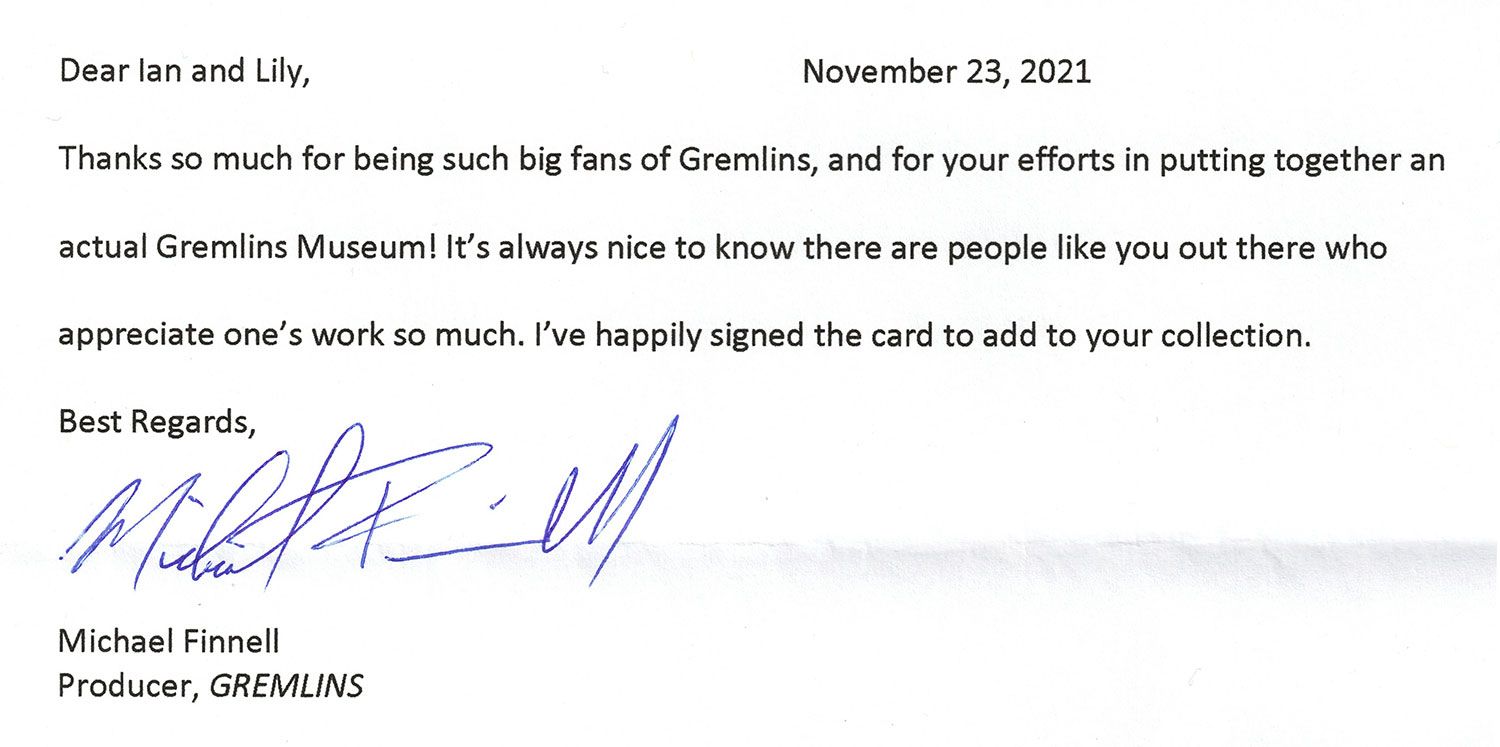 Dear Ian and Lily, November 23, 2021
Thanks so much for being such big fans of Gremlins, and for your efforts in putting together an
actual Gremlins Museum! It’s always nice to know there are people like you out there who
appreciate one’s work so much. I’ve happily signed the card to add to your collection.
Best Regards,
Michael Finnell
Michael Finnell
Producer, GREMLINS